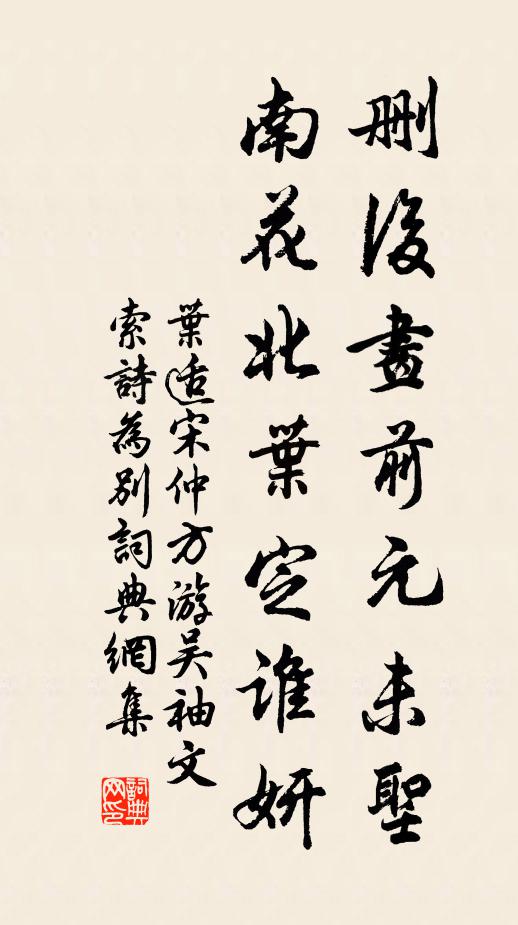 刪後畫前元未聖
南花北葉定誰妍
葉适宋仲方游吴袖文
索詩為别詞典網集
詞典网印